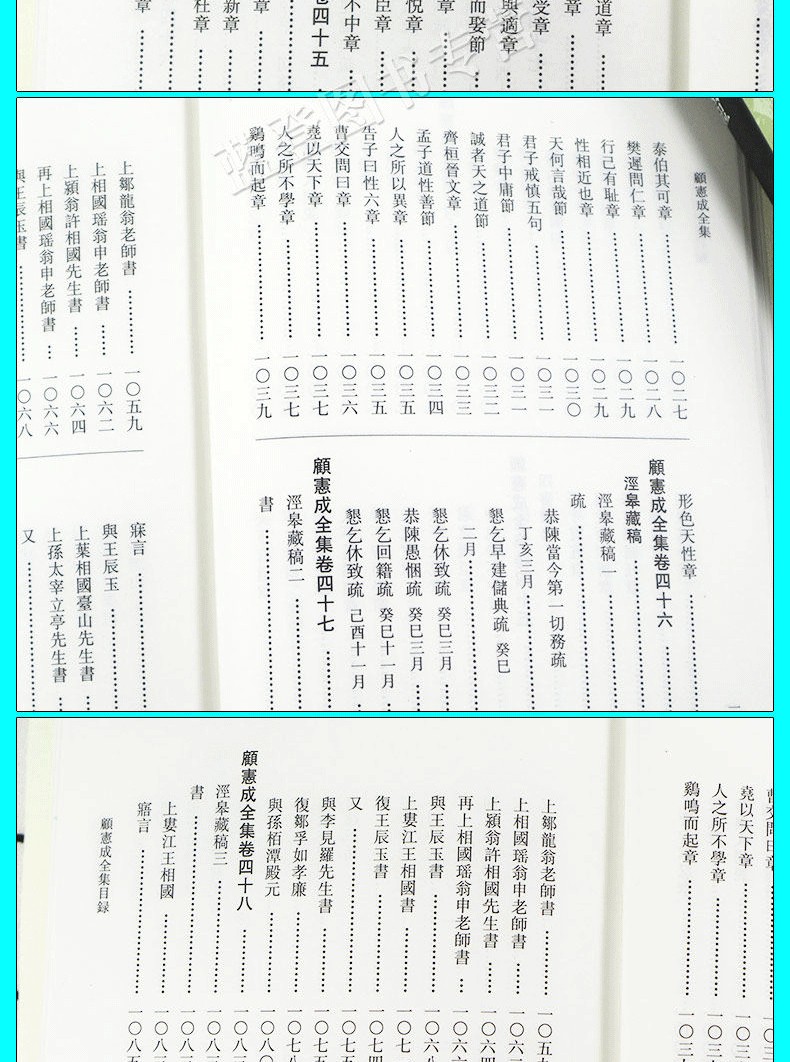 道章
章
受章
與適章
而娶節
章
悅章
臣章
不中章
卷四十五
章
新章
杜章
章
蓝登图书专营
顧憲成全集
泰伯其可章 …… 一〇二七
樊遲問仁章 …… 一〇二八
行己有恥章 …… 一〇二九
性相近也章 …… 一〇二九
天何言哉節 …… 一〇三〇
君子戒慎五句 …… 一〇三一
君子中庸節 …… 一〇三一
誠者天之道節 …… 一〇三二
齊桓晉文章 …… 一〇三三
孟子道性善節 …… 一〇三四
人之所以異章 …… 一〇三五
告子曰性六章 …… 一〇三五
曹交問曰章 …… 一〇三六
堯以天下章 …… 一〇三七
人之所不學章 …… 一〇三七
鷄鳴而起章 …… 一〇三九
形色天性章 ……
顧憲成全集卷四十六 ……
涇臯藏稿
涇臯藏稿一 ……
疏 ……
恭陳當今第一切務疏
丁亥三月 ……
懇乞早建儲典疏 癸巳
二月 ……
懇乞休致疏 癸巳三月 ……
恭陳愚悃疏 癸巳三月 ……
懇乞回籍疏 癸巳十一月 ……
懇乞休致疏 己酉十一月 ……
顧憲成全集卷四十七 ……
涇臯藏稿二 ……
書 ……
上鄒龍翁老師書 …… 一〇五九
上相國瑶翁申老師書 …… 一〇六二
上潁翁許相國先生書 …… 一〇六四
再上相國瑶翁申老師書 …… 一〇六六
與王辰玉書 …… 一〇六八
寐言 ……
與王辰玉 ……
上葉相國臺山先生書 ……
上孫太宰立亭先生書 ……
又 ……
曹交問曰章
堯以天下章 ……
人之所不學章 ……
鷄鳴而起章 ……
上鄒龍翁老師書 …… 一〇五九
上相國瑶翁申老師書 …… 一〇六
上潁翁許相國先生書 …… 一〇六四
再上相國瑶翁申老師書 …… 一〇六
與王辰玉書 …… 一〇六八
上婁江王相國書 …… 一〇七
復王辰玉書 …… 一〇七四
又 …… 一〇七
與李見羅先生書 …… 一〇七
復鄒孚如孝廉 …… 一〇七八
與孫栢潭殿元 …… 一〇八〇
顧憲成全集卷四十八 …… 一〇八
涇臯藏稿三 …… 一〇八
書 …… 一〇八
上婁江王相國 …… 一〇八
寤言 …… 一〇八五
顧憲成全集目録